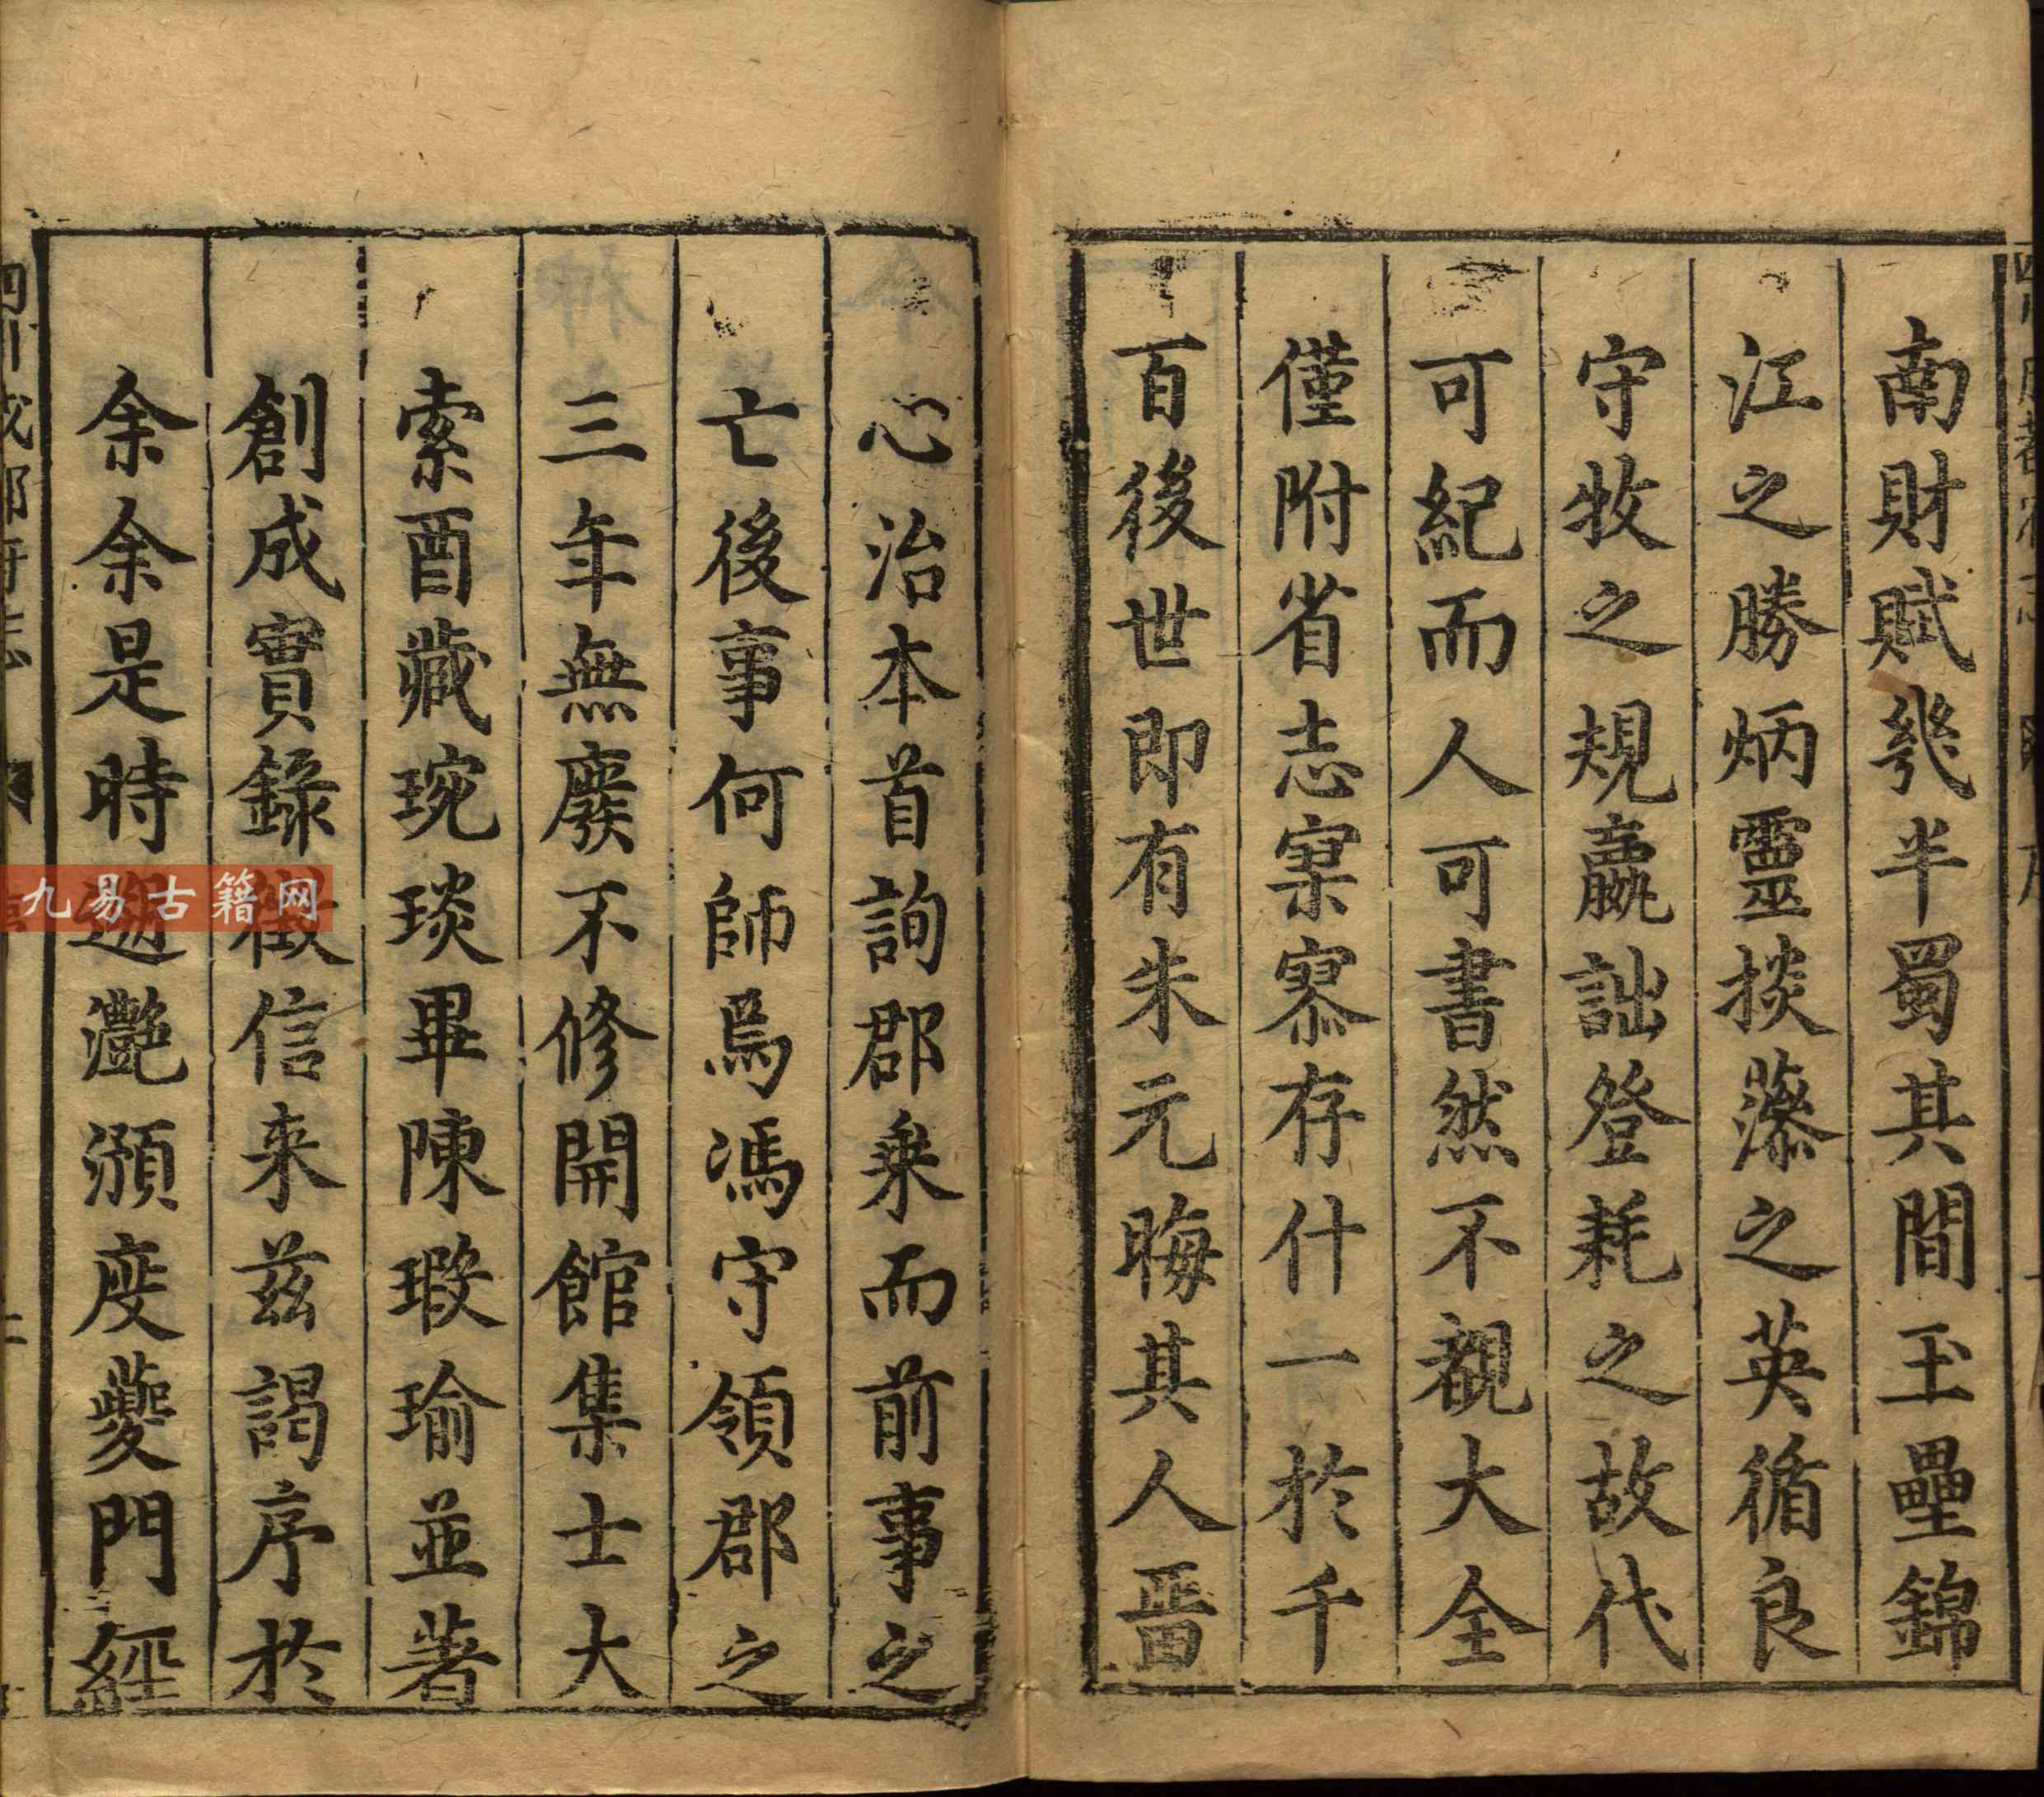 南財賦幾半蜀其間玉壘錦
江之勝炳靈掞藻之英循良
守牧之規嬴詘登耗之故代
可紀而人可書然不覩大全
僅附省志寥寥存什一於千
百後世即有朱元晦其人晋
心治本首詢郡乗而前事之
亡後事何師焉馮守領郡之
三年無廢不修開館集士大
索酉藏琬琰畢陳瑕瑜並著
創成實錄徵信来茲謁序於
余余是時遡灧澦度夔門經
四川成都府志
九易古籍网